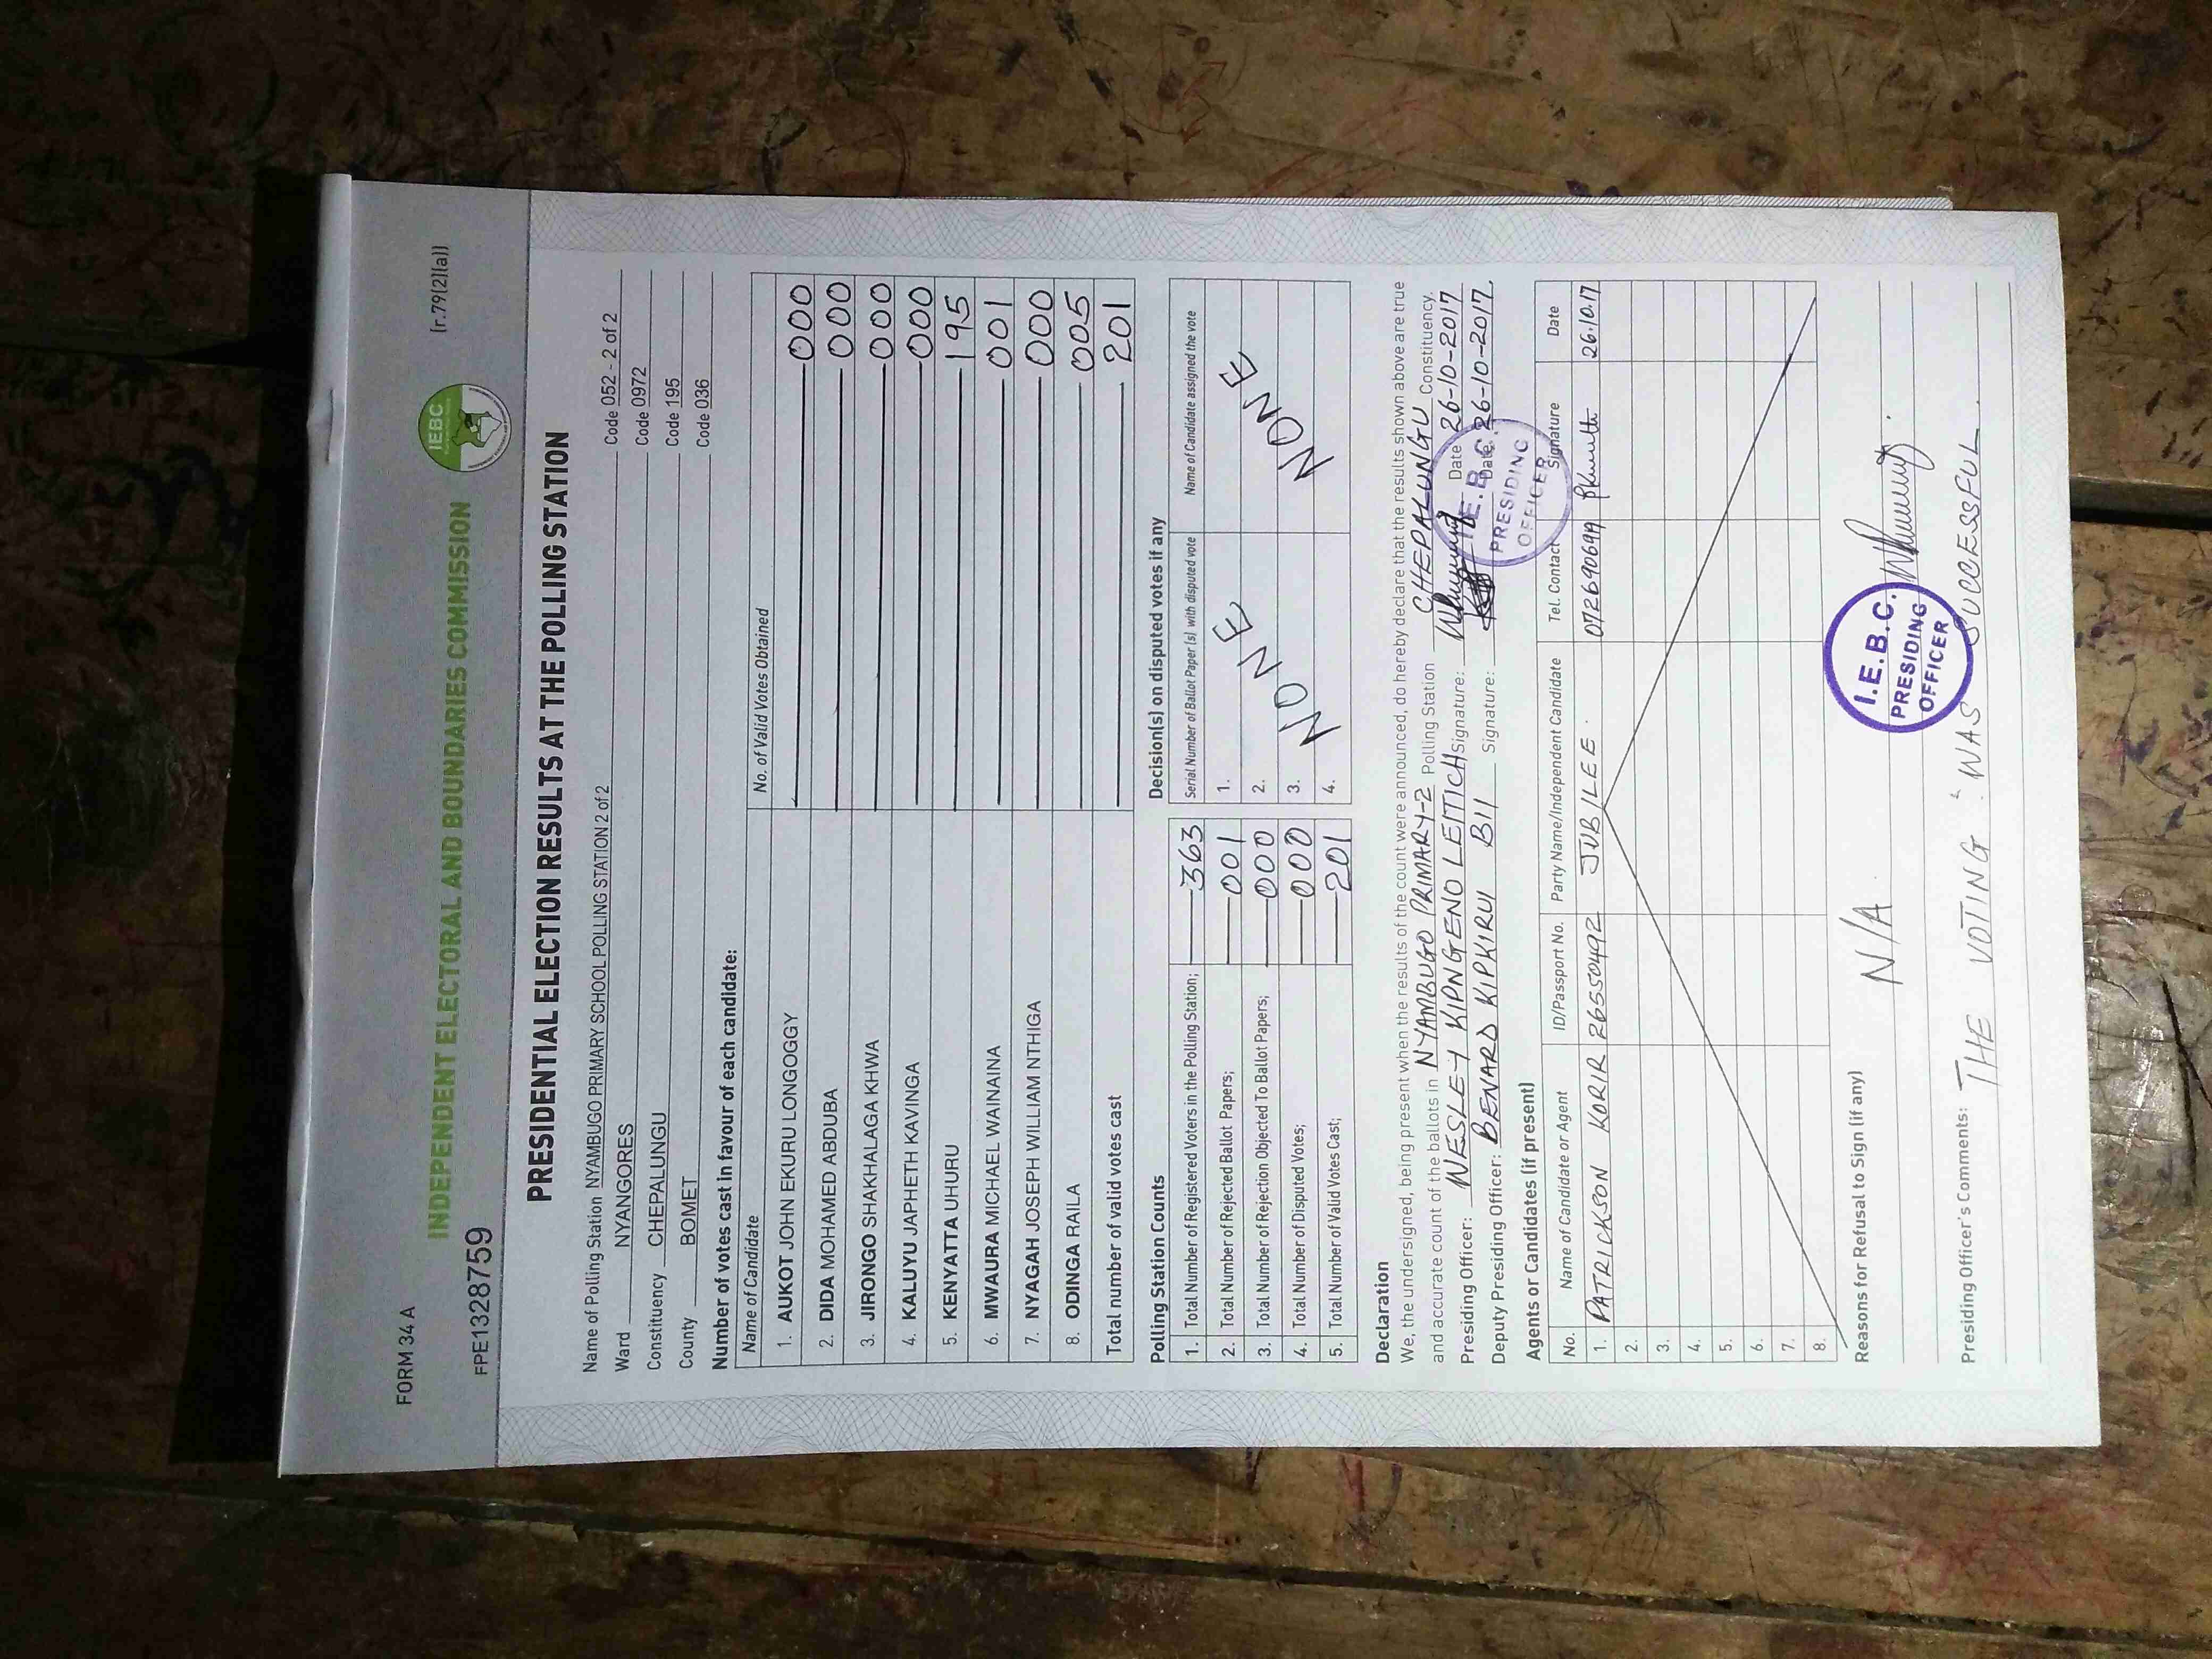 FORM 34 A
[r.79(2)(a)]
IEBC
INDEPENDENT ELECTORAL AND BOUNDARIES COMMISSION
FPE1328759
PRESIDENTIAL ELECTION RESULTS AT THE POLLING STATION
Name of Polling Station NYAMBUGO PRIMARY SCHOOL POLLING STATION 2 of 2 Code 052 - 2 of 2
Ward NYANGORES Code 0972
Constituency CHEPALUNGU Code 195
County BOMET Code 036
Number of votes cast in favour of each candidate:
Name of Candidate No. of Valid Votes Obtained
1. AUKOT JOHN EKURU LONGOGGY 000
2. DIDA MOHAMED ABDUBA 000
3. JIRONGO SHAKHALAGA KHWA 000
4. KALUYU JAPHETH KAVINGA 000
5. KENYATTA UHURU 195
6. MWAURA MICHAEL WAINAINA 001
7. NYAGAH JOSEPH WILLIAM NTHIGA 000
8. ODINGA RAILA 005
Total number of valid votes cast 201
Polling Station Counts
1. Total Number of Registered Voters in the Polling Station; 363
2. Total Number of Rejected Ballot Papers; 001
3. Total Number of Rejection Objected To Ballot Papers; 000
4. Total Number of Disputed Votes; 000
5. Total Number of Valid Votes Cast; 201
Decision(s) on disputed votes if any
Serial Number of Ballot Paper (s) with disputed vote Name of Candidate assigned the vote
1. NONE NONE
2.
3. NONE NONE
4.
Declaration
We, the undersigned, being present when the results of the count were announced, do hereby declare that the results shown above are true
and accurate count of the ballots in NYAMBUGO PRIMARY-2 Polling Station CHEPALUNGU Constituency.
Presiding Officer: WESLEY KIPNGENO LEITICH Signature: Date 26-10-2017
Deputy Presiding Officer: BENARD KIPKIRUI BII Signature: Date: 26-10-2017.
I.E.B.C.
PRESIDING
OFFICER
Agents or Candidates (if present)
No. Name of Candidate or Agent ID/Passport No. Party Name/Independent Candidate Tel. Contact Signature Date
1. PATRICKSON KORIR 26550492 JUBILEE. 0726690699 26.10.17
2.
3.
4.
5.
6.
7.
8.
Reasons for Refusal to Sign (if any)
N/A
I.E.B.C.
PRESIDING
OFFICER
Presiding Officer's Comments: THE VOTING WAS SUCCESSFUL.